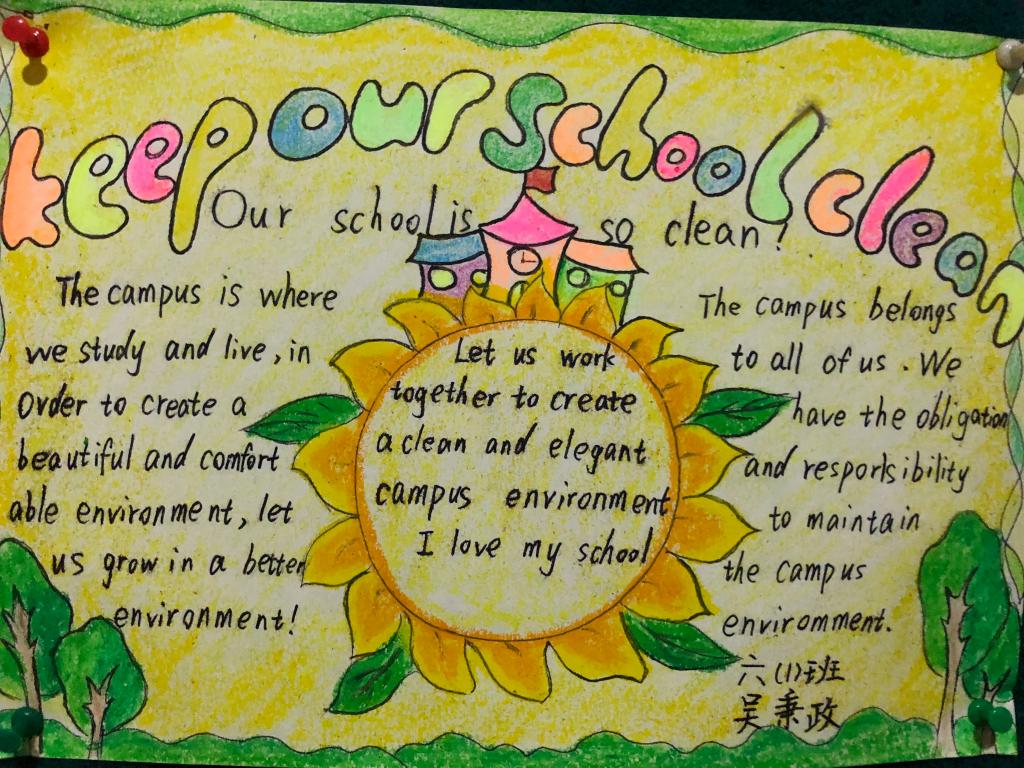 keep our school clean
Our school is so clean!
The campus is where
we study and live, in
Order to create a
beautiful and comfort
able environment, let
us grow in a better
environment!
Let us work
together to create
a clean and elegant
campus environment
I love my school
The campus belongs
to all of us. We
have the obligation
and responsibility
to maintain
the campus
enviromment.
六(1)班
吴秉政